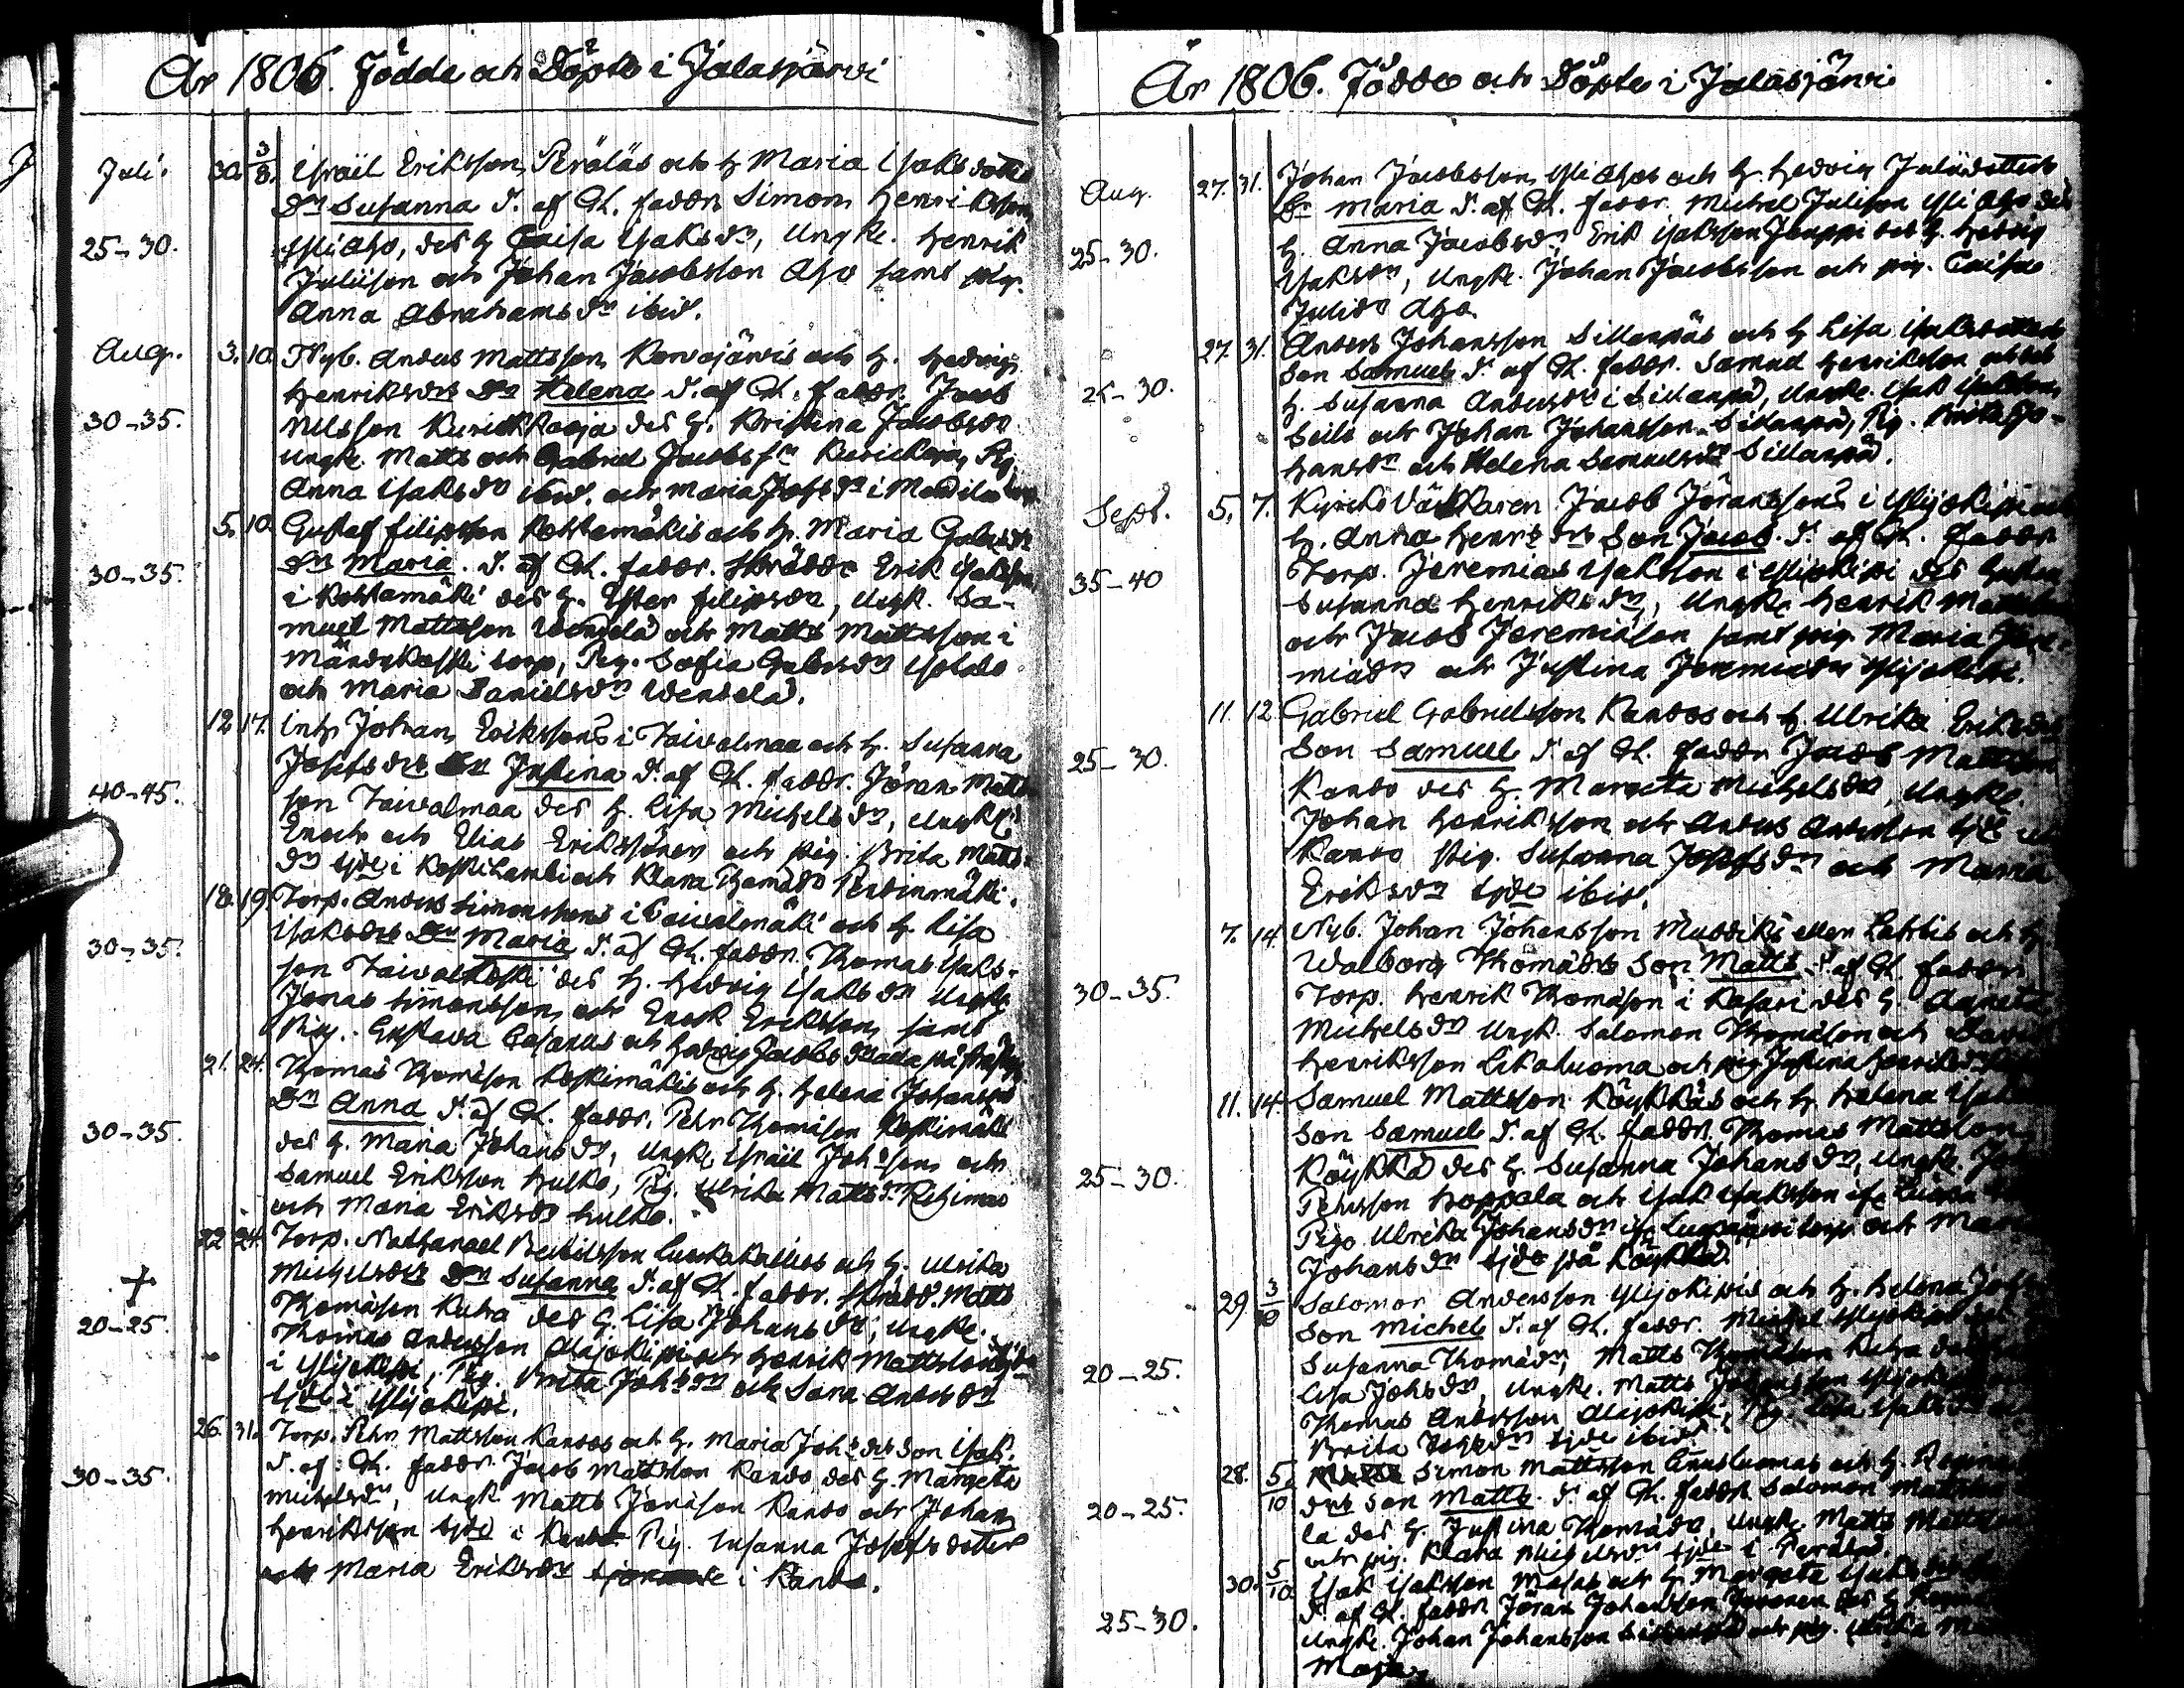 År 1806. Födde och Döpte i Jalasjärvi
Juli. 30. 3/8. Israel Eriksson Peräläs och H Maria Isaksdotters
Dr Susanna d. af Ch. faddr. Simon Henriksson
25-30. Yliaho, des H Caisa Isaksdr, Ungk. Henrik
Juliison och Johan Jacobsson Aho samt pig.
Anna Abrahamsdr ibid.
Aug. 3. 10. Nyb. Anders Mattsson Korvajärvis och H. Hedvig
Henriksdrs Dr Helena d. af Ch. faddr. Jacob
30-35. Nilsson Kurickkaoja des H. Kristina Jacobsdr
Ungk. Matts och Gabriel Jacobs sn Kurickaoja, Pig.
Anna Isaksdr ibid. och Maria Josefsdr i torp.
5. 10. Gustaf Filipsson Koskamäkis och H. Maria Gabrsdrs
Dr Maria. d. af Ch. faddr. Skräddr Erik Isaksson
30-35. i Koskamäki des H. Ester Filipsdr, Ungk. Sa-
muel Mattsson Wentelä och Matts Mattsson i
Mändykoski torp, Pig. Sofia Gabrsdr Isotalo
och Maria Danielsdr Wentelä.
12 17. Inh Johan Erikssons i Taivalmaa och H. Susanna
Josefsdrs Dr Justina d. af Ch. faddr. Jöran Matts
40-45. son Taivalmaa des H. Lisa Michelsdr, Ungk.
Enoch och Elias Erikssöner och pig. Brita Matts-
dr tjde i Koskilambi och Klara Thomädr Pentinmäki.
18. 19. Torp. Anders Simonssons i Taivalmäki och H. Lisa
Isaksdrs Dr Maria d. af Ch. faddr. Thomas Isaks-
30-35. son Taivalkoski des H. Hedvig Isaksdr Ungk.
Jonas Simonsson och Enock Eriksson samt
Pig. Gustava och Hedvig Jacobsdr
21. 24. Thomas Thomäson Koskimäkis och H. Helena Johansdrs
Dr Anna d. af Ch. faddr. Pehr Thomäson Koskimäki
30-35. des H. Maria Johansdr, Ungk. Israel Joh:son och
Samuel Eriksson Hulko, Pig. Ulrika Mattsdr
och Maria Eriksdr Hulko.
22 24. Torp. Nathanael och H. Ulrika
+ Michelsdrs Dr Susanna d. af Ch. faddr. Skrädd. Matts
20-25. Thomäson Kuhra des H. Lisa Johansdr, Ungk.
Thomas Andersson Alajokipii och Henrik Mattsson tjde
i Ylijokipi, Pig. Brita Joh:dr och Sara Andersdr
tjde i Ylijokipi.
26. 31. Torp. Pehr Mattsson Kandos och H. Maria Joh:drs Son Isak.
30-35. d. af Ch. faddr. Jacob Mattsson Kando des H. Margeta
Michelsdr, Ungk. Matts Jonäson Kando och Johan
Henriksson tjde i Kando Pig. Susanna Josefsdotter
och Maria Eriksdr tjenande i Kando.
År 1806. Födde och Döpte i Jalasjärvi
Aug. 27. 31. Johan Jacobsson Yliahos och H. Hedvig Juliidotters
Dr Maria d. af Ch. faddr. Michel Juliison Yliaho des
25-30. H. Anna Jacobsdr Erik Isaksson Jauppi des H. Hedvig
Isaksdr, Ungk. Johan Jacobsson och pig. Caisa
Juliidr Aho.
27. 31. Anders Johansson Sillanpäs och H Lisa Isaksdotters
Son Samuel d. af Ch. faddr. Samuel Henriksson och des
25-30. H. Susanna Andersdr i Sillanpä, Ungk. Isak Isaksson
Seilo och Johan Johansson Sillanpä, Pig. Brita Jo-
hansdr och Helena Samuelsdr Sillanpä.
Sept. 5. 7. Kyrckoväcktaren Jacob Jöranssons i Ylijokipi och
H. Anna Henr:drs Son Jacob d. af Ch. faddr
35-40 Torp. Jeremias Isaksson i Ylijokipi des hustru
Susanna Henriksdr, Ungk. Henrik
och Jacob Jeremiäson samt pig. Maria Jere-
miädr och Justina Jeremiädr Ylijokipi.
11. 12 Gabriel Gabrielsson Kandos och H Ulrika Eriksdrs
25-30. Son Samuel d. af Ch. faddr Jacob Mattsson
Kando des H. Margeta Michelsdr, Ungk.
Johan Henriksson och Anders Andersson tjde
Kando Pig. Susanna Josefsdr och Maria
Eriksdr tjde ibid.
7. 14. Nyb. Johan Johansson eller Lahtis och H
Walborg Thomädrs Son Matts d. af Ch. faddr
30-35. Torp. Henrik Thomäson i Kasari des H. Agneta
Michelsdr Ungk. Salomon Thomäson och
Henriksson Likaluoma och pig Justina Henriksdr
11. 14. Samuel Mattsson Köykkäs och H Helena
Son Samuel d. af Ch. faddr. Thomas Mattsson
25-30. Köykkä des H. Susanna Johansdr, Ungk.
Pehrsson Hoppala och Isak Isaksson
Pigo Ulrika Johansdr torp och
Johansdr tjde på Köykkä.
29 3/10 Salomon Andersson Ylijokipis och H. Helena
Son Michel d. af Ch. faddr. Michel Ylijokipi
20-25. Susanna Thomädr, Matts Thomäson Kuhra
Lisa Johsdr, Ungk. Matts Johansson Ylijokipi
Thomas Andersson Alajokipi, Pig. Lisa Isaksdr
Brita tjde ibid.
28. 5/10 Simon Mattsson Luasluomas och H. Regina
20-25. drs Son Matts. d. af Ch. faddr. Salomon Mattsson
la des H. Justina Thomädr, Ungk. Matts Mattsson
och pig. Klara Michelsdr tjde i Perälä.
30. 5/10 Isak Isaksson och H Margeta
d. af Ch. faddr. Jöran Johansson des H
25-30. Ungk. Johan Johansson Sillanpä och pig. Ulrika